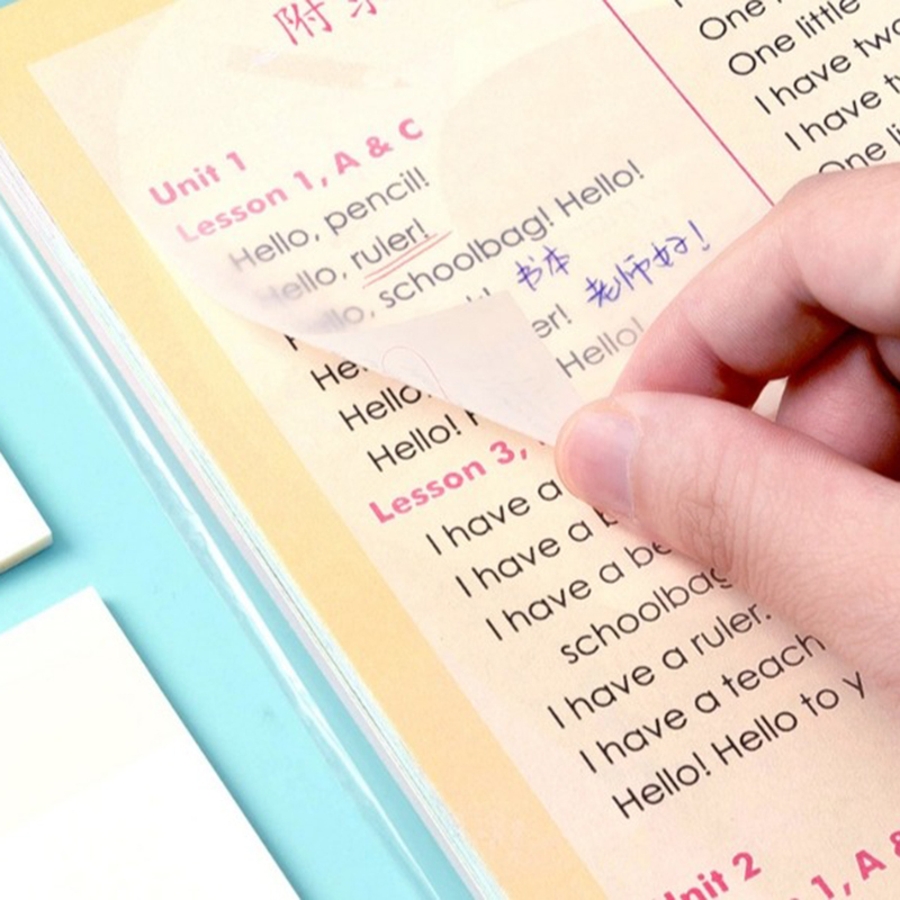 附录
Unit 1
Lesson 1, A & C
Hello, pencil!
Hello, ruler!
Hello, schoolbag! Hello!
书本
er! 老师好!
Hello!
Hello
Hello!
Lesson 3,
I have a
I have a
I have a
schoolbag
I have a ruler.
I have a teach
Hello! Hello to y
Unit 2
1, A &
One
One little
I have two
I have
One li